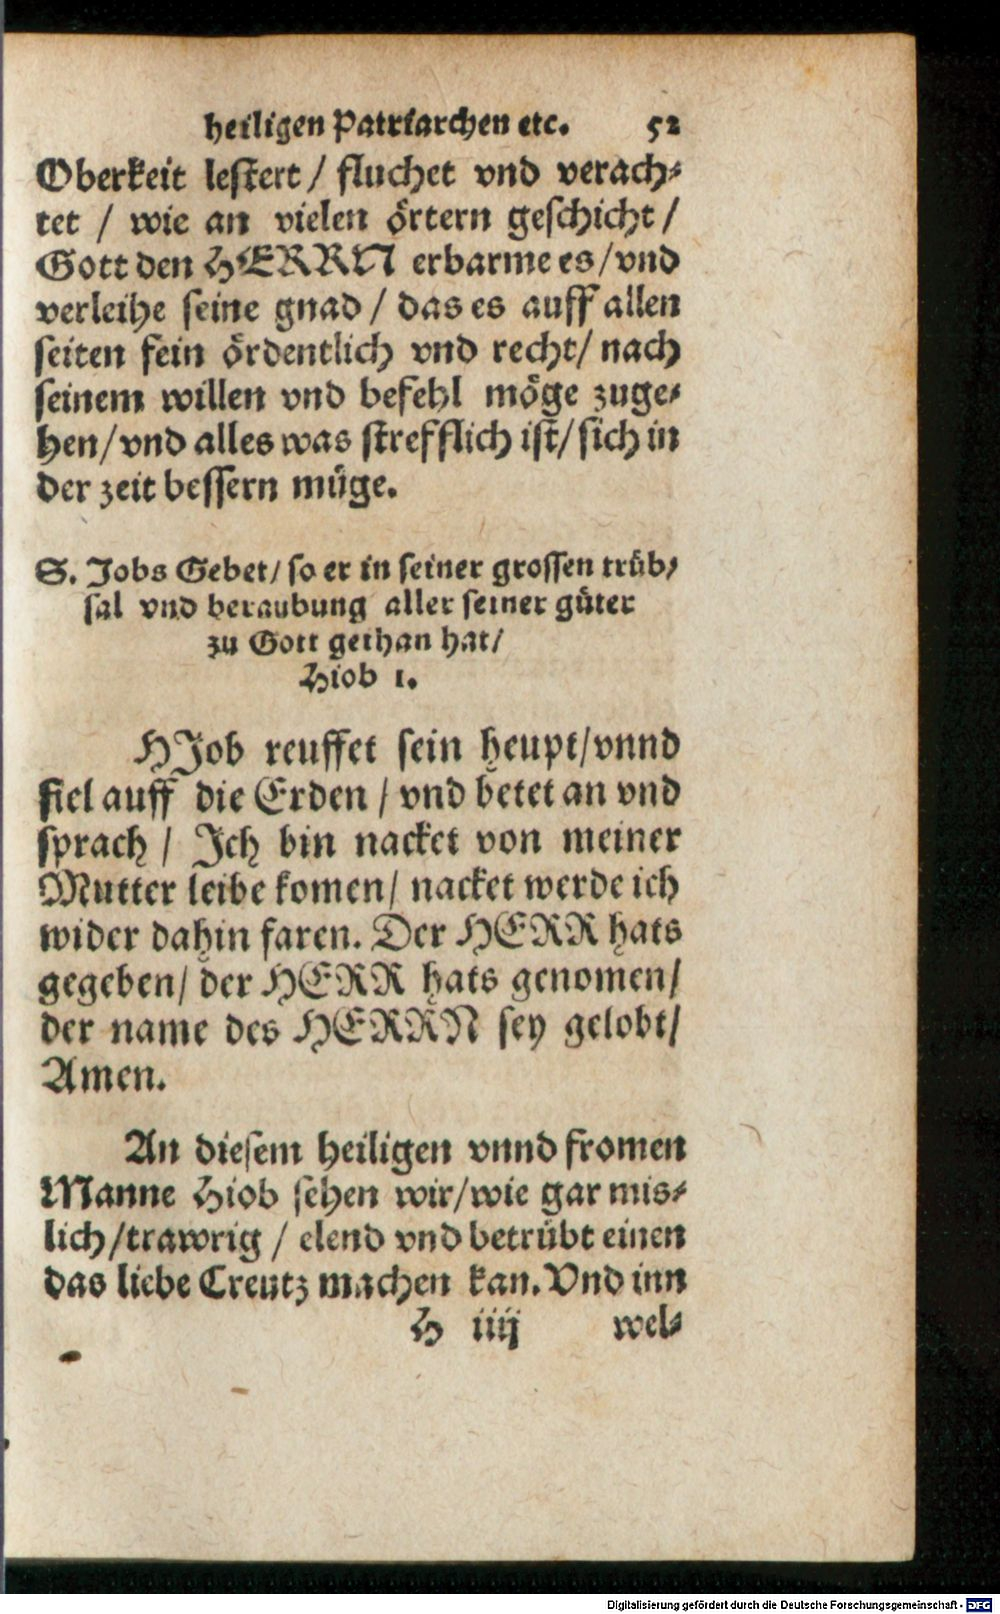 heiligen Patriarchen etc. 52
Oberkeit lestert / fluchet vnd verach-
tet / wie an vielen örtern geschicht /
Gott den HERRN erbarme es / vnd
verleihe seine gnad / das es auff allen
seiten fein ördentlich vnd recht / nach
seinem willen vnd befehl möge zuge-
hen / vnd alles was strefflich ist / sich in
der zeit bessern müge.
S. Jobs Gebet / so er in seiner grossen trüb-
sal vnd beraubung aller seiner güter
zu Gott gethan hat /
Hiob 1.
HJob reuffet sein heupt / vnnd
fiel auff die Erden / vnd betet an vnd
sprach / Jch bin nacket von meiner
Mutter leibe komen / nacket werde ich
wider dahin faren. Der HERR hats
gegeben / der HERR hats genomen /
der name des HERRN sey gelobt /
Amen.
An diesem heiligen vnnd fromen
Manne Hiob sehen wir / wie gar mis-
lich / trawrig / elend vnd betrübt einen
das liebe Creutz machen kan. Vnd inn
H iiij wel-
Digitalisierung gefördert durch die Deutsche Forschungsgemeinschaft - DFG